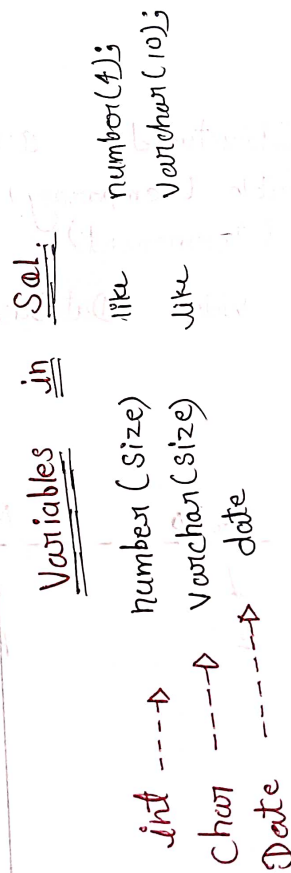 Variables in Sql.
int ----> number (size) like number(4);
Char ----> Varchar(size) like Varchar(10);
Date ------> date